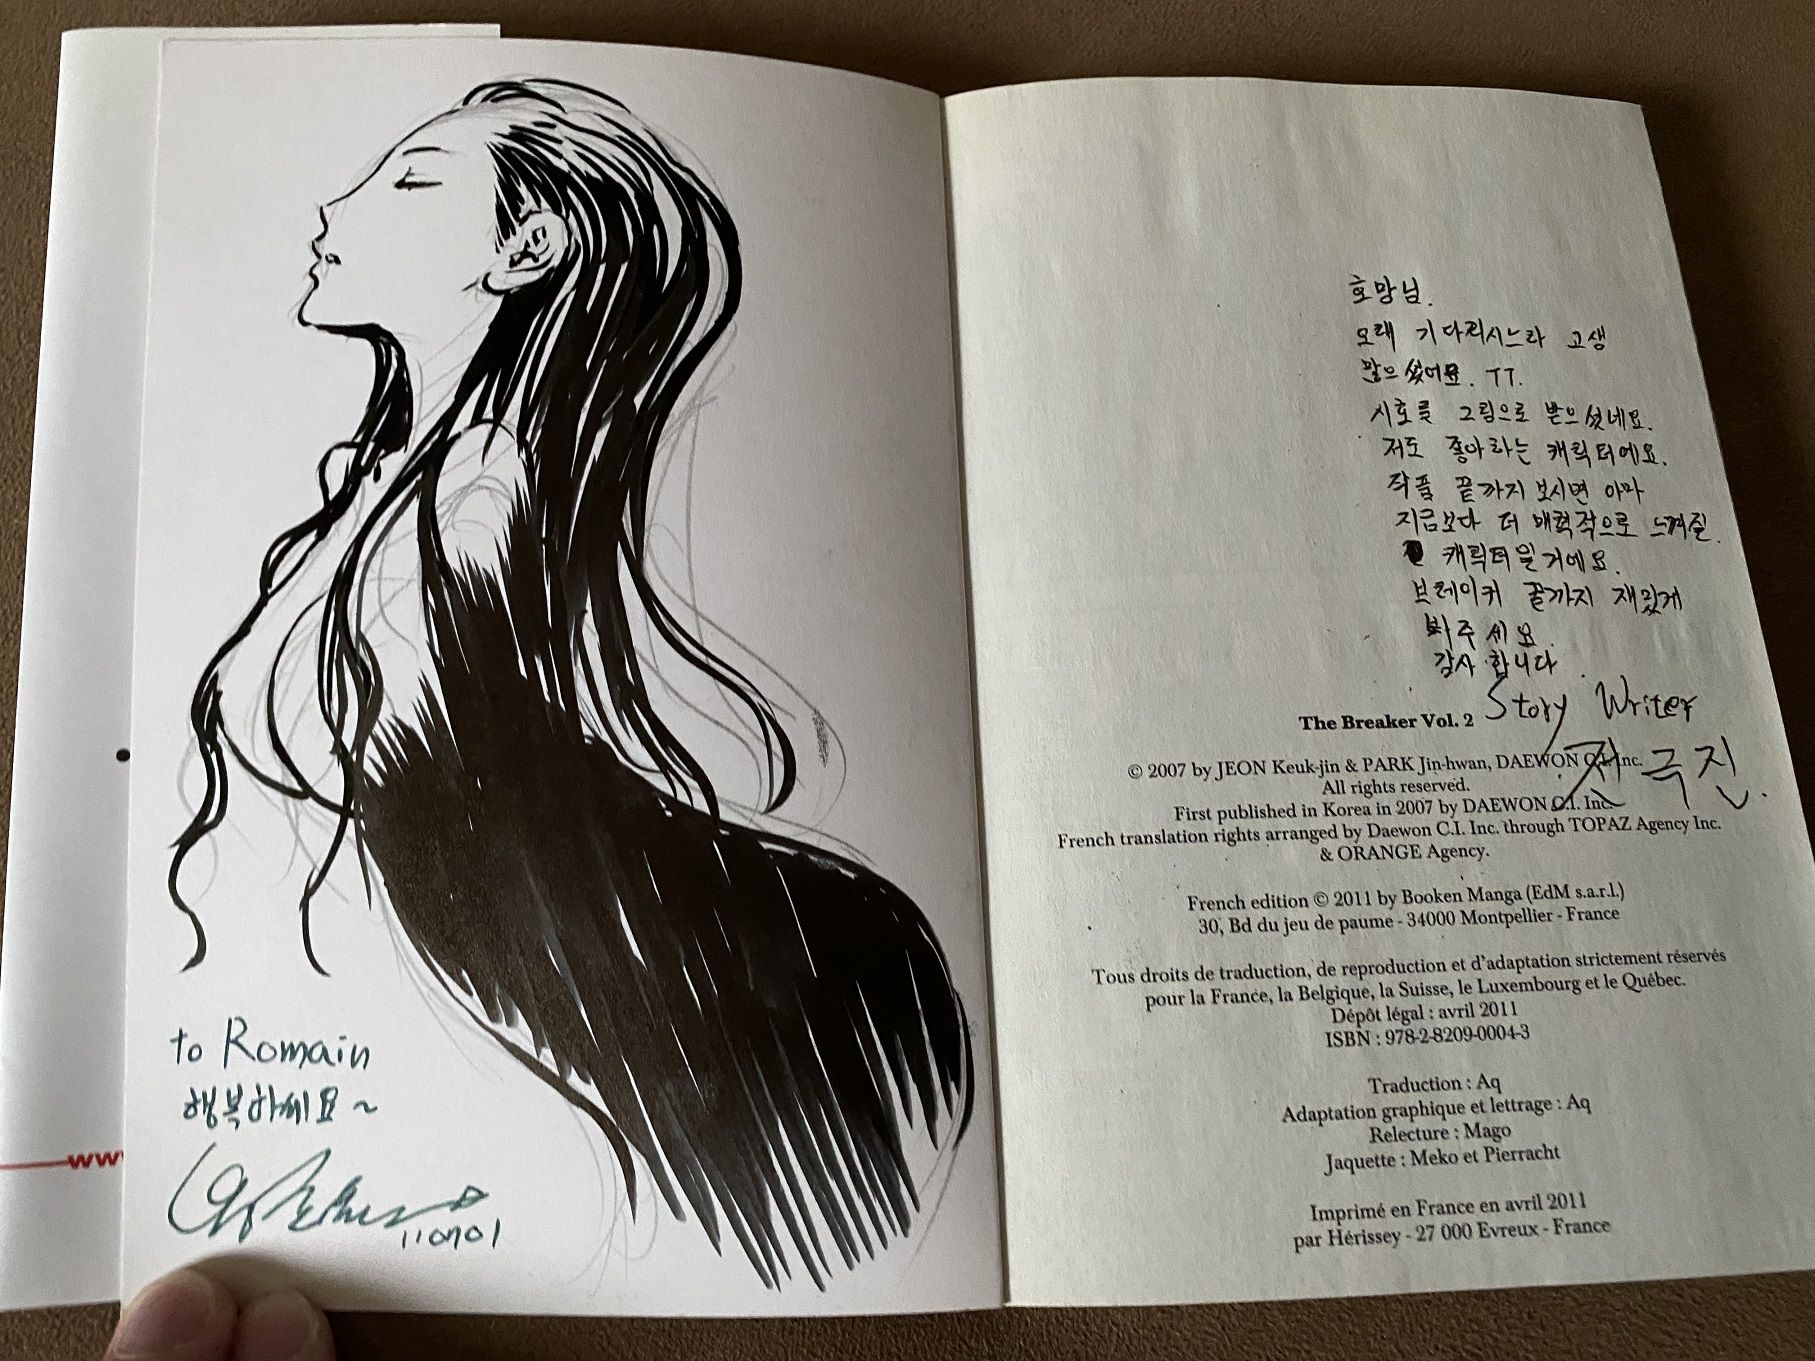 to Romain
행복하세요~
110701
www
호망님.
오래 기다리시느라 고생
많으셨어요. TT.
시호를 그림으로 받으셨네요.
저도 좋아하는 캐릭터에요.
작품 끝까지 보시면 아마
지금보다 더 매력적으로 느껴질.
캐릭터일거에요.
브레이커 끝까지 재밌게
봐주세요.
감사합니다.
Story Writer
전극진.
The Breaker Vol. 2
© 2007 by JEON Keuk-jin & PARK Jin-hwan, DAEWON C.I. Inc.
All rights reserved.
First published in Korea in 2007 by DAEWON C.I. Inc.
French translation rights arranged by Daewon C.I. Inc. through TOPAZ Agency Inc.
& ORANGE Agency.
French edition © 2011 by Booken Manga (EdM s.a.r.l.)
30, Bd du jeu de paume - 34000 Montpellier - France
Tous droits de traduction, de reproduction et d'adaptation strictement réservés
pour la France, la Belgique, la Suisse, le Luxembourg et le Québec.
Dépôt légal : avril 2011
ISBN : 978-2-8209-0004-3
Traduction : Aq
Adaptation graphique et lettrage : Aq
Relecture : Mago
Jaquette : Meko et Pierracht
Imprimé en France en avril 2011
par Hérissey - 27 000 Evreux - France